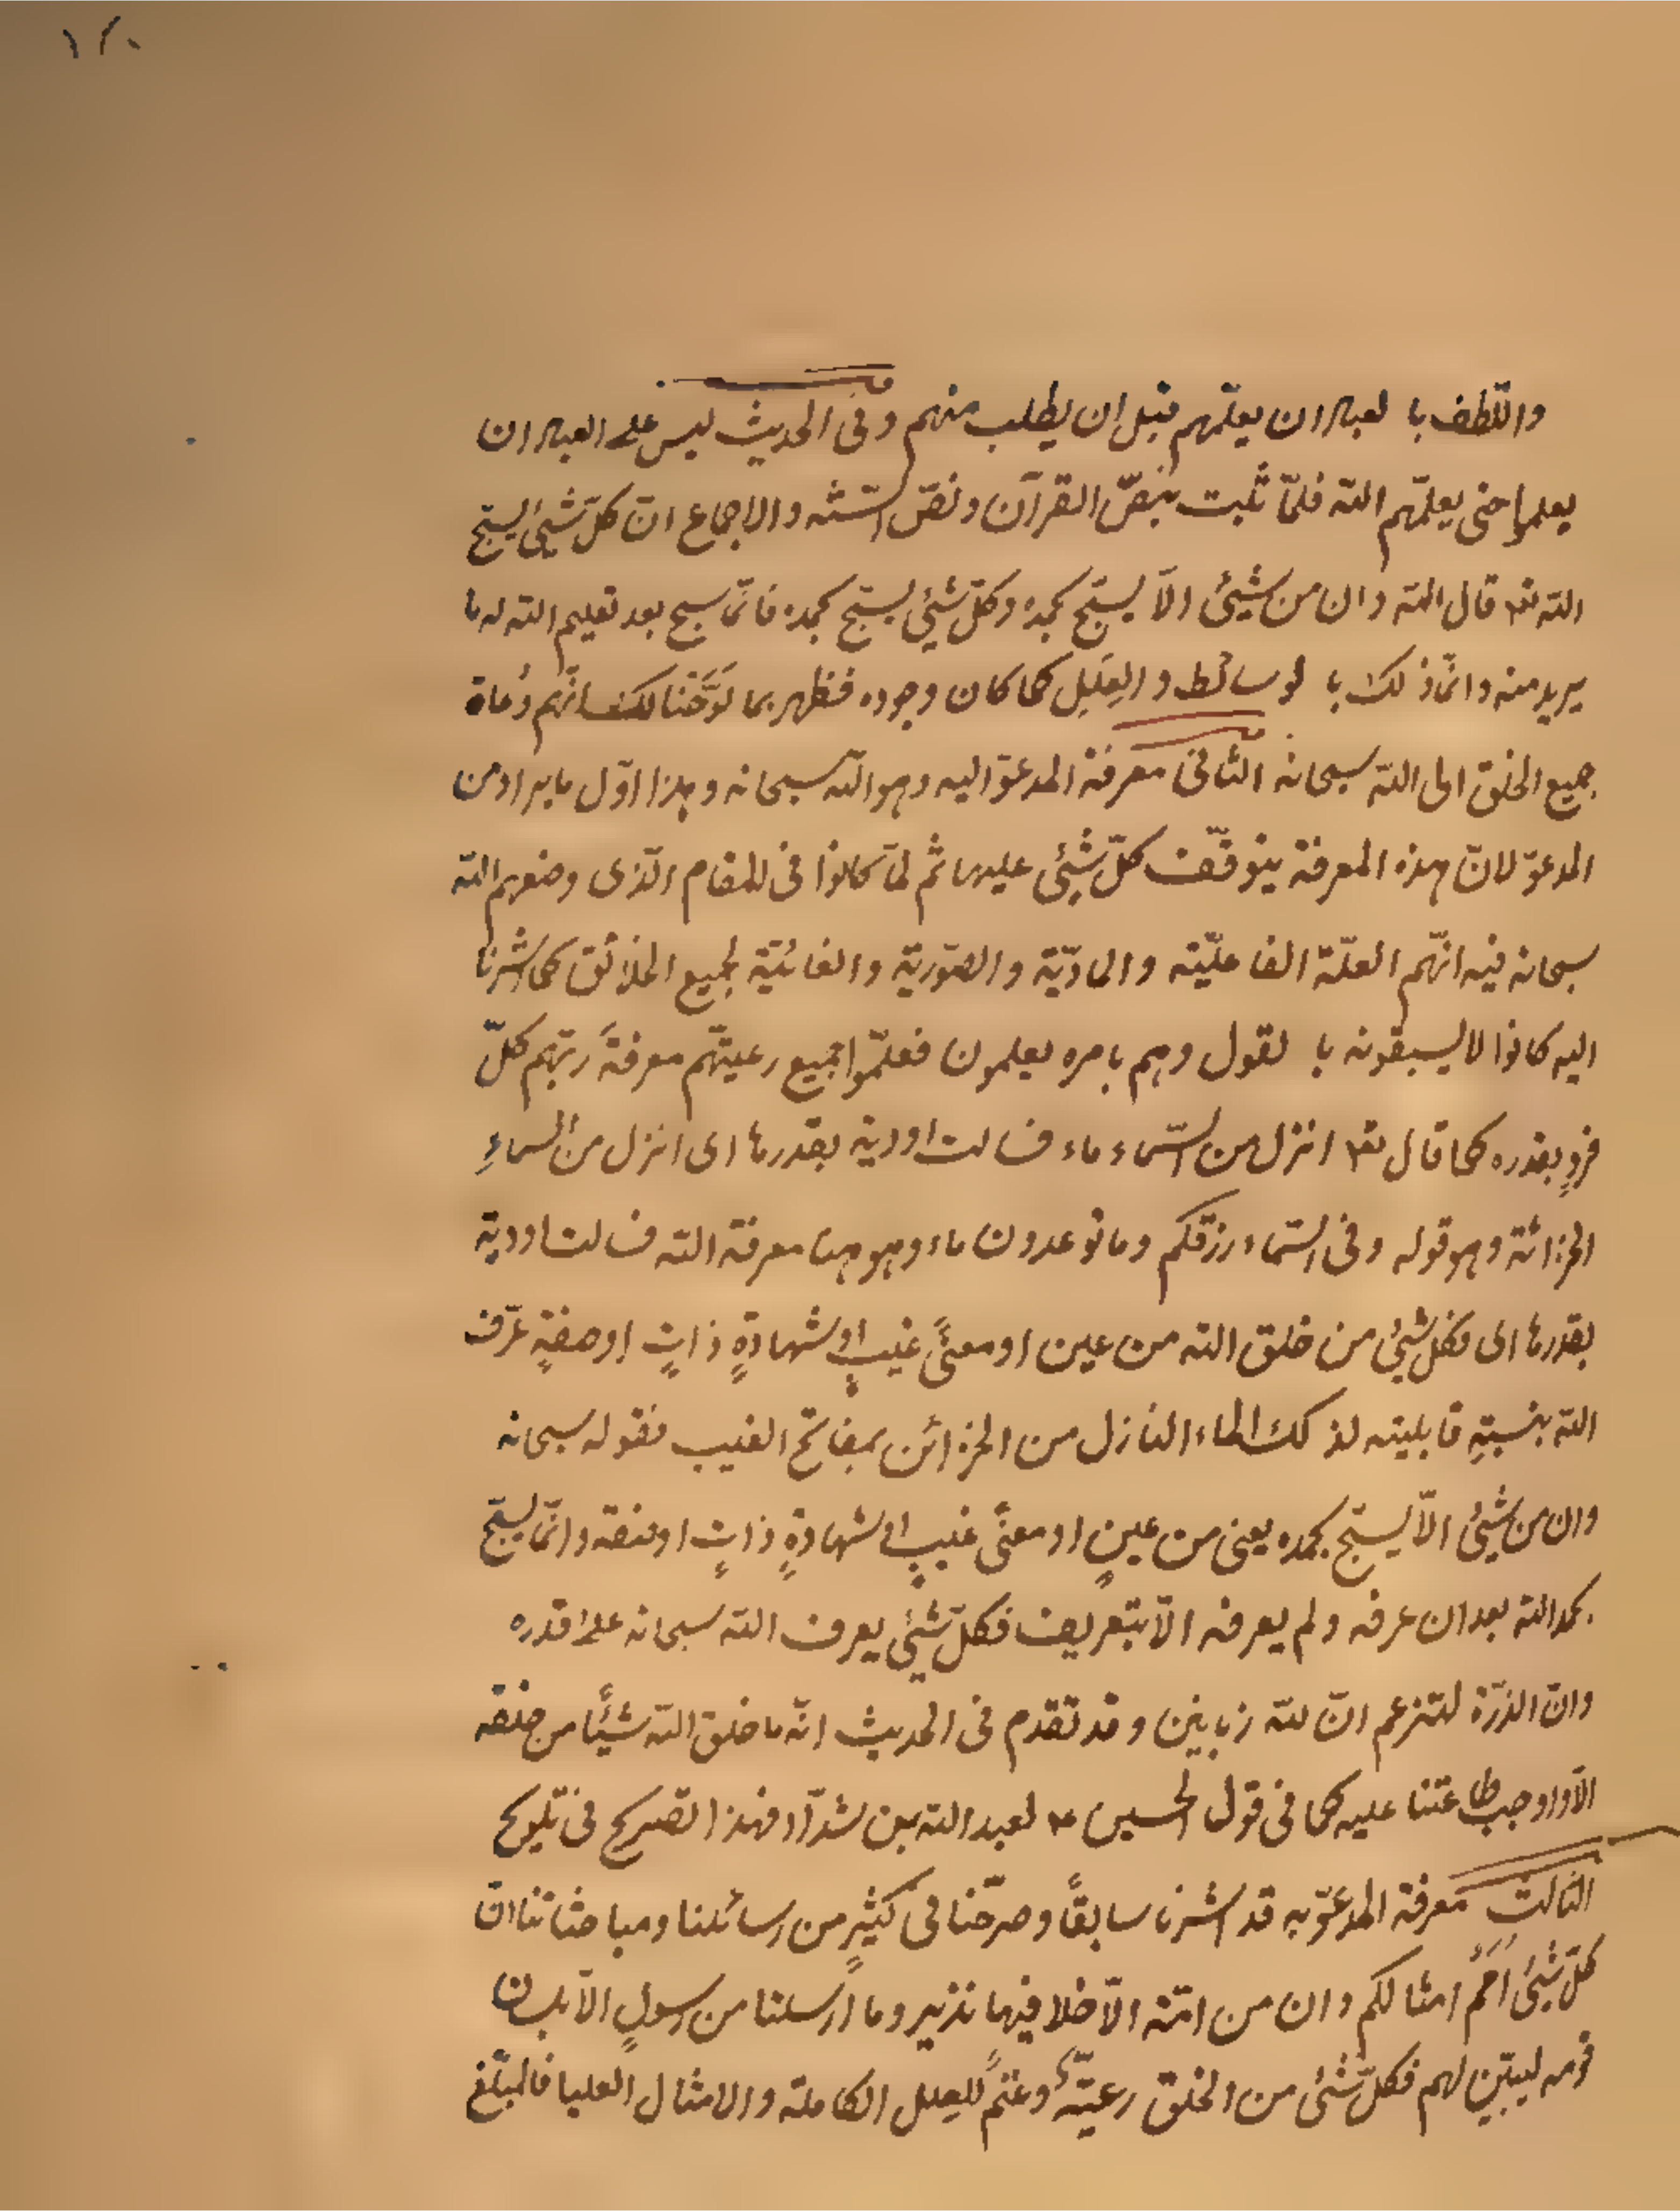 ١٢٠
واللطف بالعباد ان يعلّمهم قبل ان يطلب منهم وفى الحديث ليس على العباد ان
يعلموا حتى يعلّمهم اللّه فلمّا ثبت بنصّ القرآن ونصّ السّنّه والاجماع انّ كلّ شيئ يسبّح
اللّه تعا قال اللّه وان من شيئ الّا يسبّح بحمده وكلّ شيئ يسبّح بحمده فانّما سبح بعد تعليم اللّه له ما
يريد منه وانّما ذلك بالوسائط والعِلَلِ كما كان وجوده فظهر بما لَوَّحْنا لك انّهم دُعاة
جميع الخلق الى اللّه سبحانه الثانى معرفة المدعوّ اليه وهو اللّه سبحانه وهذا اوّل ما يراد من
المدعوّ لانّ هذه المعرفة يتوقّف كلّ شيئ عليها ثم لمّا كانوا فى المقام الّذى وضعهم اللّه
سبحانه فيه انّهم العلّة الفاعليّة والمادّيّة والصّوريّة والغائيّة لجميع الخلائق كما اشرنا
اليه كانوا لا يسبقونه بالقول وهم بامره يعلمون فعلّموا جميع رعيتّهم معرفةً ربّهم كلّ
فردٍ بقدره كما قال تعا انزل من السّماء ماء فسالت اودية بقدرها اى انزل من السماءِ
الخزائنة وهو قوله وفى السّماء رزقكم وما توعدون ماء وهو هنا معرفة اللّه فسالت اودية
بقدرها اى فكل شيئ من خلق اللّه من عين او معنىً غيبٍ او شهادةٍ ذاتٍ او صفةٍ عرّف
اللّه بنسبةِ قابليته لذلك الماء النازل من الخزائن بمفاتح الغيب فقوله سبحانه
وان من شيئ الّا يسبّح بحمده يعنى من عينٍ او معنًى غيبٍ او شهادةٍ ذاتٍ او صفة وانّما يسبّح
بحمد اللّه بعد ان عرفه ولم يعرفه الّا بتعريف فكلّ شيئ يعرف اللّه سبحانه على قدره
وانّ الذرّة لتزعم انّ للّه زبانين وقد تقدم فى الحديث انّه ما خلق اللّه شيئًا من خلقه
الّا واوجب طاعتنا عليه كما فى قول الحسين ع لعبد اللّه بن شدّاد فهذا تصريح فى تلويح
الثالث معرفة المدعوّ به قد اشرنا سابقًا وصرّحنا فى كثيرٍ من رسائلنا ومباحثاتنا انّ
كلّ شيئ اُمَمٌ امثالكم وان من امّة الّا خلا فيها نذير وما ارسلنا من رسولٍ الّا بلسان
قومه ليبيّن لهم فكلّ شيئ من الخلق رعيّةٌ وغنمٌ للعلل الكاملة والامثال العليا فالمبلّغ